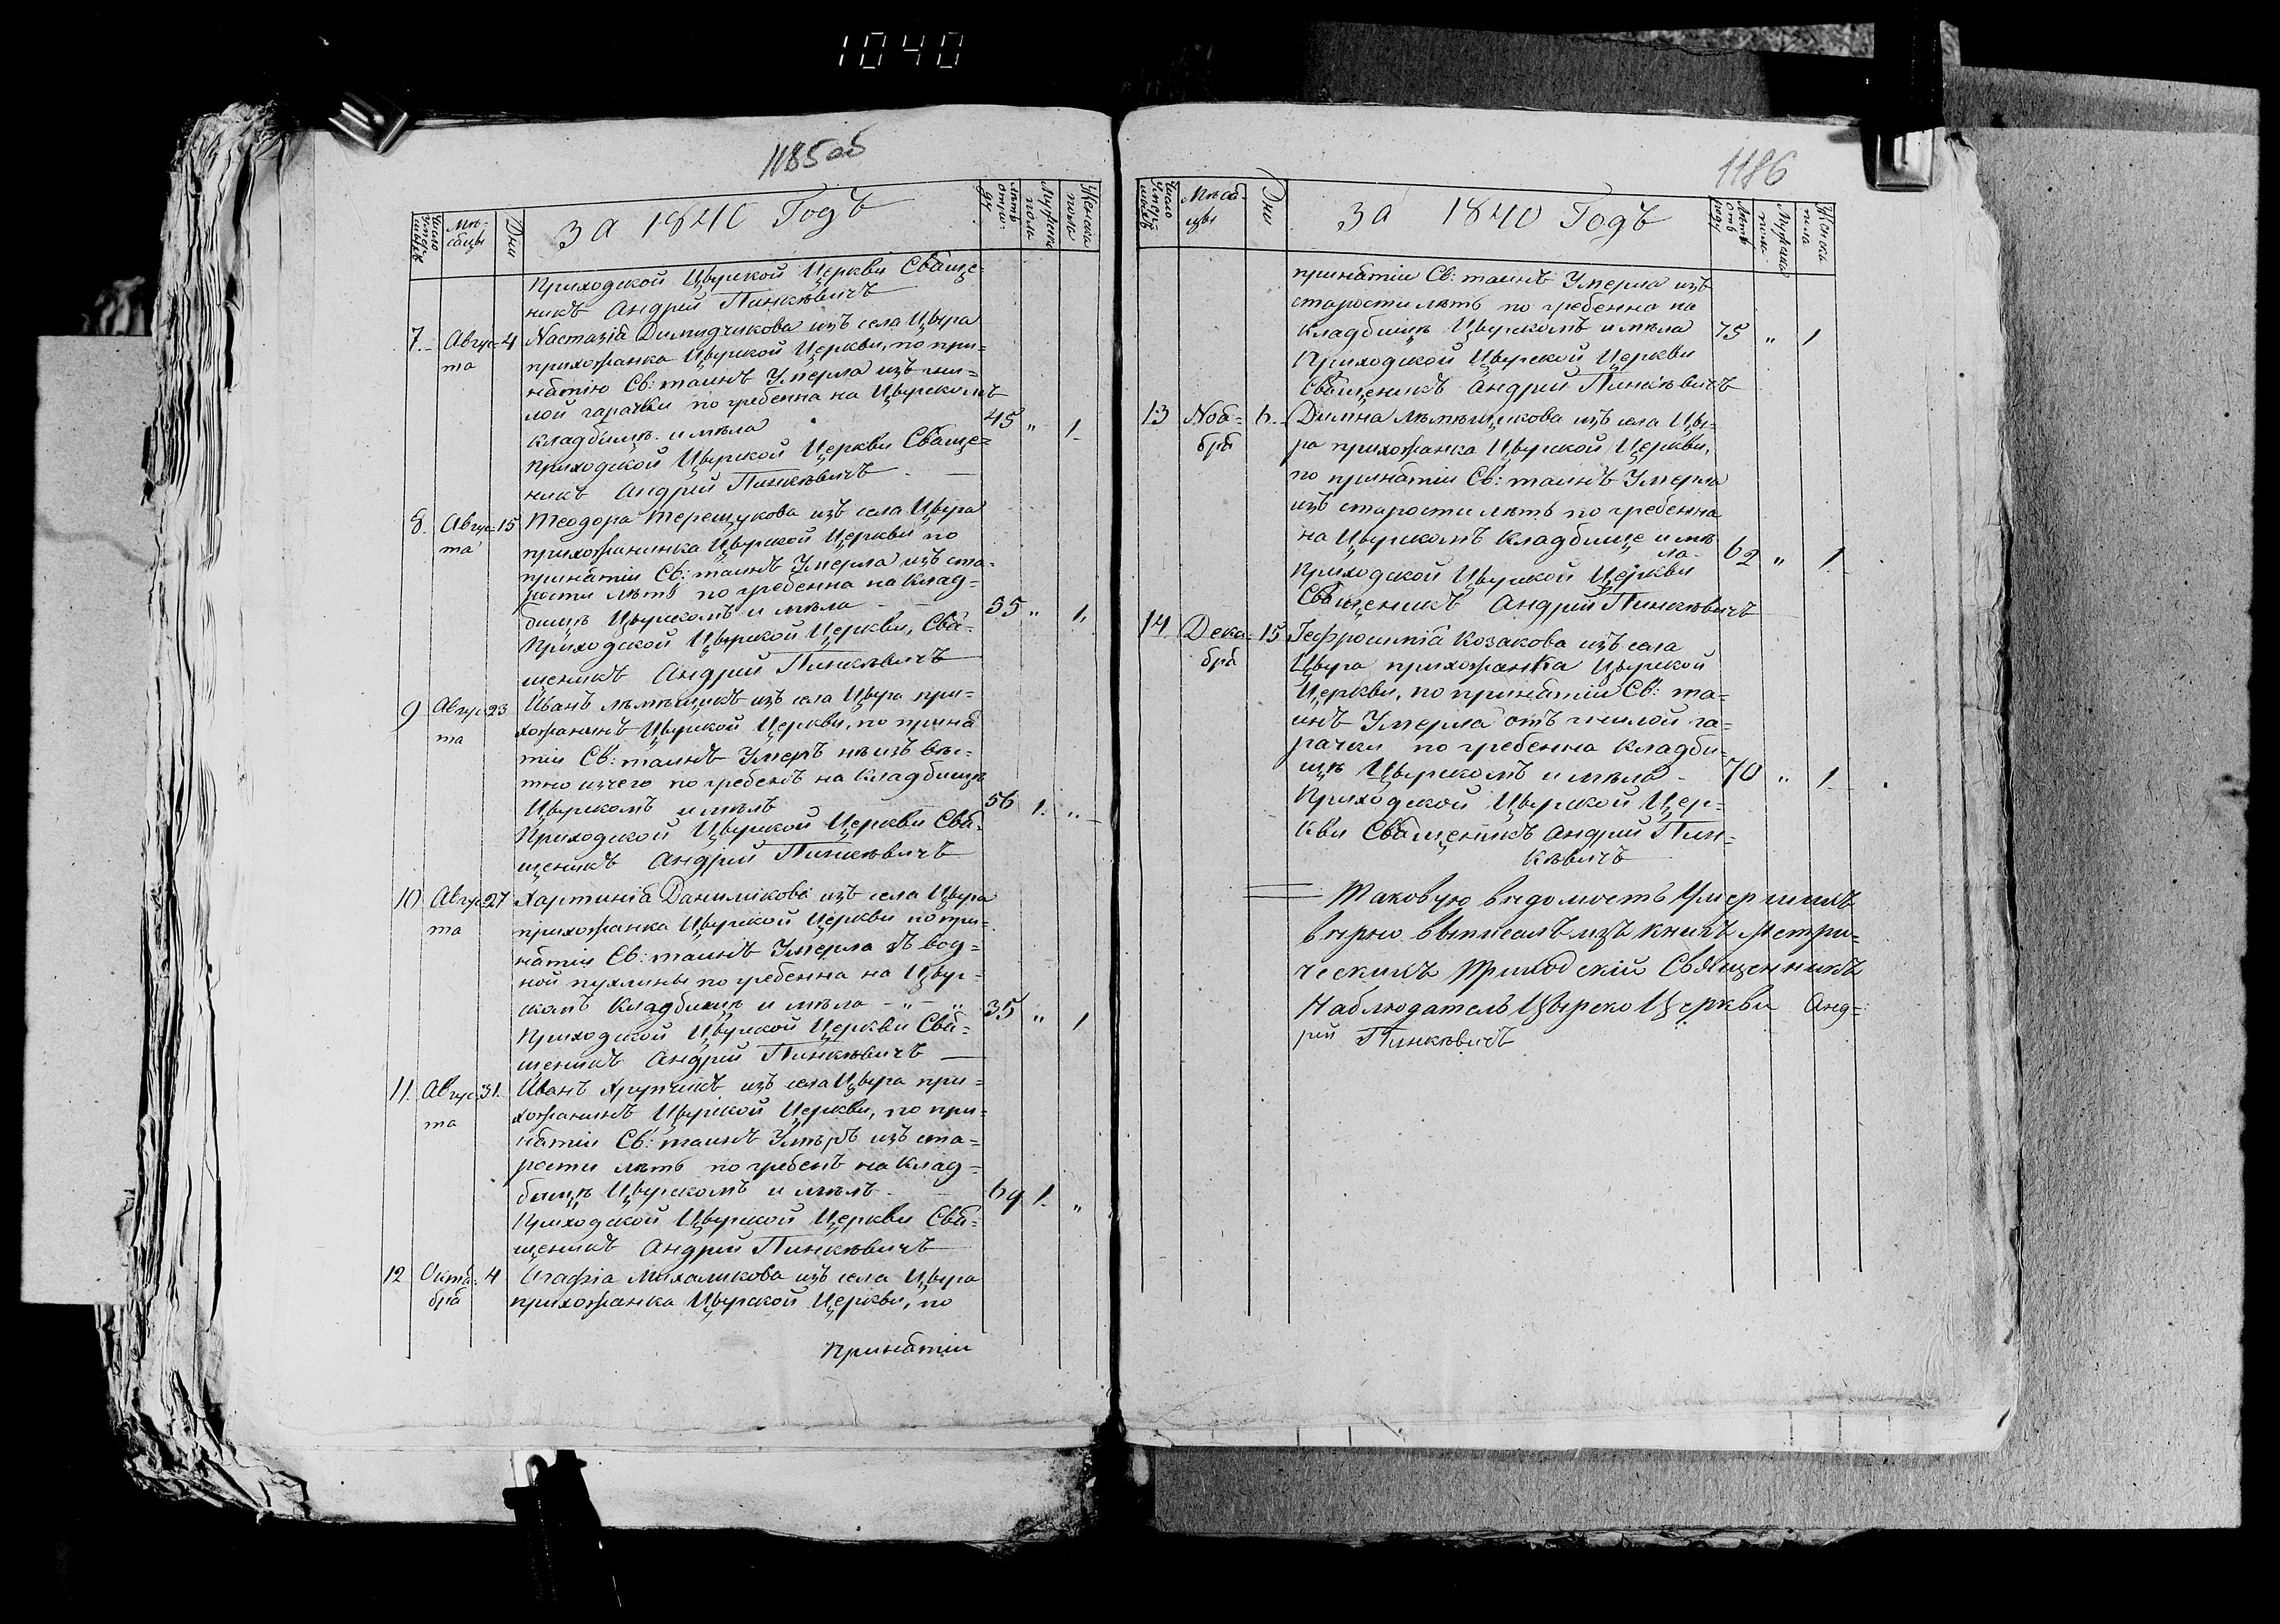 1040
1185об
Число Умер-шихъ
Мѣ-сяцы
Дни
За 1840 Годъ
Лѣтъ отро-ду
Мужеска пола
Женска пола
Приходской Цѣрской Церкви Свяще-
никъ Андрій Пинкѣвичъ
7. Авгус-та 4 Настазія Димидчикова изъ села Цѣра
прихожанка Цѣрской Церкви, по при-
нятію Св: таинъ Умерла изъ гни-
лой гарачки погребенна на Цѣрскомъ
кладбищѣ имѣла 45 „ 1
Приходской Цѣрской Церкви Свяще-
никъ Андрій Пинкѣвичъ
8. Авгус-та 15 Теодора Терещукова изъ села Цѣра
прихожанинка Цѣрской Церкви по
принятіи Св: таинъ Умерла изъ ста-
рости лѣтъ погребенна на Клад-
бищѣ Цѣрскомъ имѣла 55 „ 1
Приходской Цѣрской Церкви, Свя-
щеникъ Андрій Пинкѣвичъ
9 Авгус-та 23 Иванъ изъ села Цѣра при-
хожанинъ Цѣрской Церкви, по приня
тіи Св: таинъ Умеръ
погребенъ на Кладбищѣ
Цѣрскомъ имѣлъ 56 1. „
Приходской Цѣрской Церкви Свя-
щеникъ Андрій Пинкѣвичъ
10 Авгус-та 27 Харитинія Даниликова изъ села Цѣра
прихожанка Цѣрской Церкви попри-
нятіи Св: таинъ Умерла въ вод-
ной пухлины погребенна на Цѣр-
скомъ Кладбищѣ имѣла - „ - „ 35 „ 1
Приходской Цѣрской Церкви Свя-
щеникъ Андрій Пинкѣвичъ
11. Авгус-та 31. Иванъ Хрупчикъ изъ села Цѣра при-
хожанинъ Цѣрской Церкви, по при-
нятіи Св: таинъ Умѣръ изъ ста-
рости лѣтъ погребенъ на Клад-
бищѣ Цѣрскомъ имѣлъ 69 1. „
Приходской Цѣрской Церкви Свя-
щеникъ Андрій Пинкѣвичъ
12 Октя-бря 4 Агафія Михаликова изъ села Цѣра
прихожанка Цѣрской Церкви, по
принятіи
1186
Число Умер-шихъ
Мѣся-цы
Дни
За 1840 Годъ
Лѣтъ отъ роду
Мужеска пола
Женска пола
принятіи Св: таинъ Умерла изъ
старости лѣтъ погребенна на
Кладбищѣ Цѣрскомъ имѣла 75 „ 1
Приходской Цѣрской Церкви
Священикъ Андрій Пинкѣвичъ
13 Ноя-бря 6. изъ села Цѣ-
ра прихожанка Цѣрской Церкви,
по принятіи Св: таинъ Умерла
изъ старости лѣтъ погребенна
на Цѣрскомъ Кладбище имѣ
ла- 62 „ 1
Приходской Цѣрской Церкви
Священикъ Андрій Пинкѣвичъ
14. Дека-бря 15 Іефросинія Козакова изъ села
Цѣра прихожанка Цѣрской
Церкви, по принятіи Св: та-
инъ Умерла отъ гнилой га-
рачки погребенна Кладби-
щѣ Цѣрскомъ имѣла - 70 „ 1
Приходской Цѣрской Цер-
кви Священикъ Андрій Пин-
кѣвичъ
Таковую вѣдомость Умершихъ
вѣрно выписалъ изъ книгъ Метри-
ческихъ Приходскій Священникъ
Наблюдатель Цѣрско Церкви Анд-
рій Пинкѣвичъ